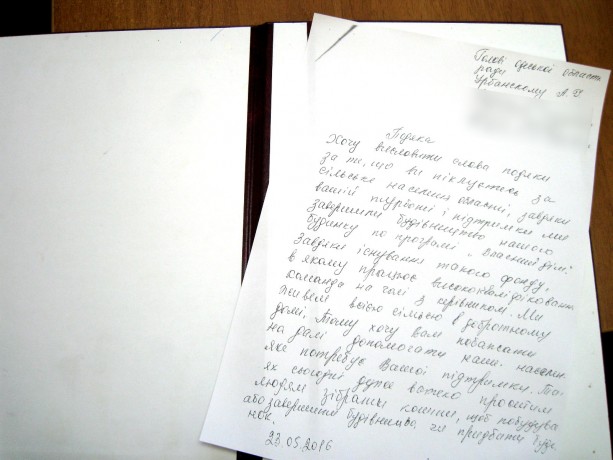 Голові Одеської області
ради
Урбанскому А. І
Подяка
Хочу висловити слова подяки
за те, що ви піклуєтесь за
сільське населення області, завдяки
вашій турботі і підтримки ми
завершили будівництво нашого
будинку по програмі „Власний дім".
Завдяки існування такого фонду,
в якому працює висококваліфікована
команда на чолі з керівником. Ми
живем всією сім'єю в добротному
домі. Тому хочу вам побажати
на далі допомогати наши. населен.
яке потребує Вашої підтримки. Та.
як сьогодні дуже важко простим
людям зібрати кошти, щоб побудува
або завершити будівництво чи придбати буди
нок.
23.05.2016